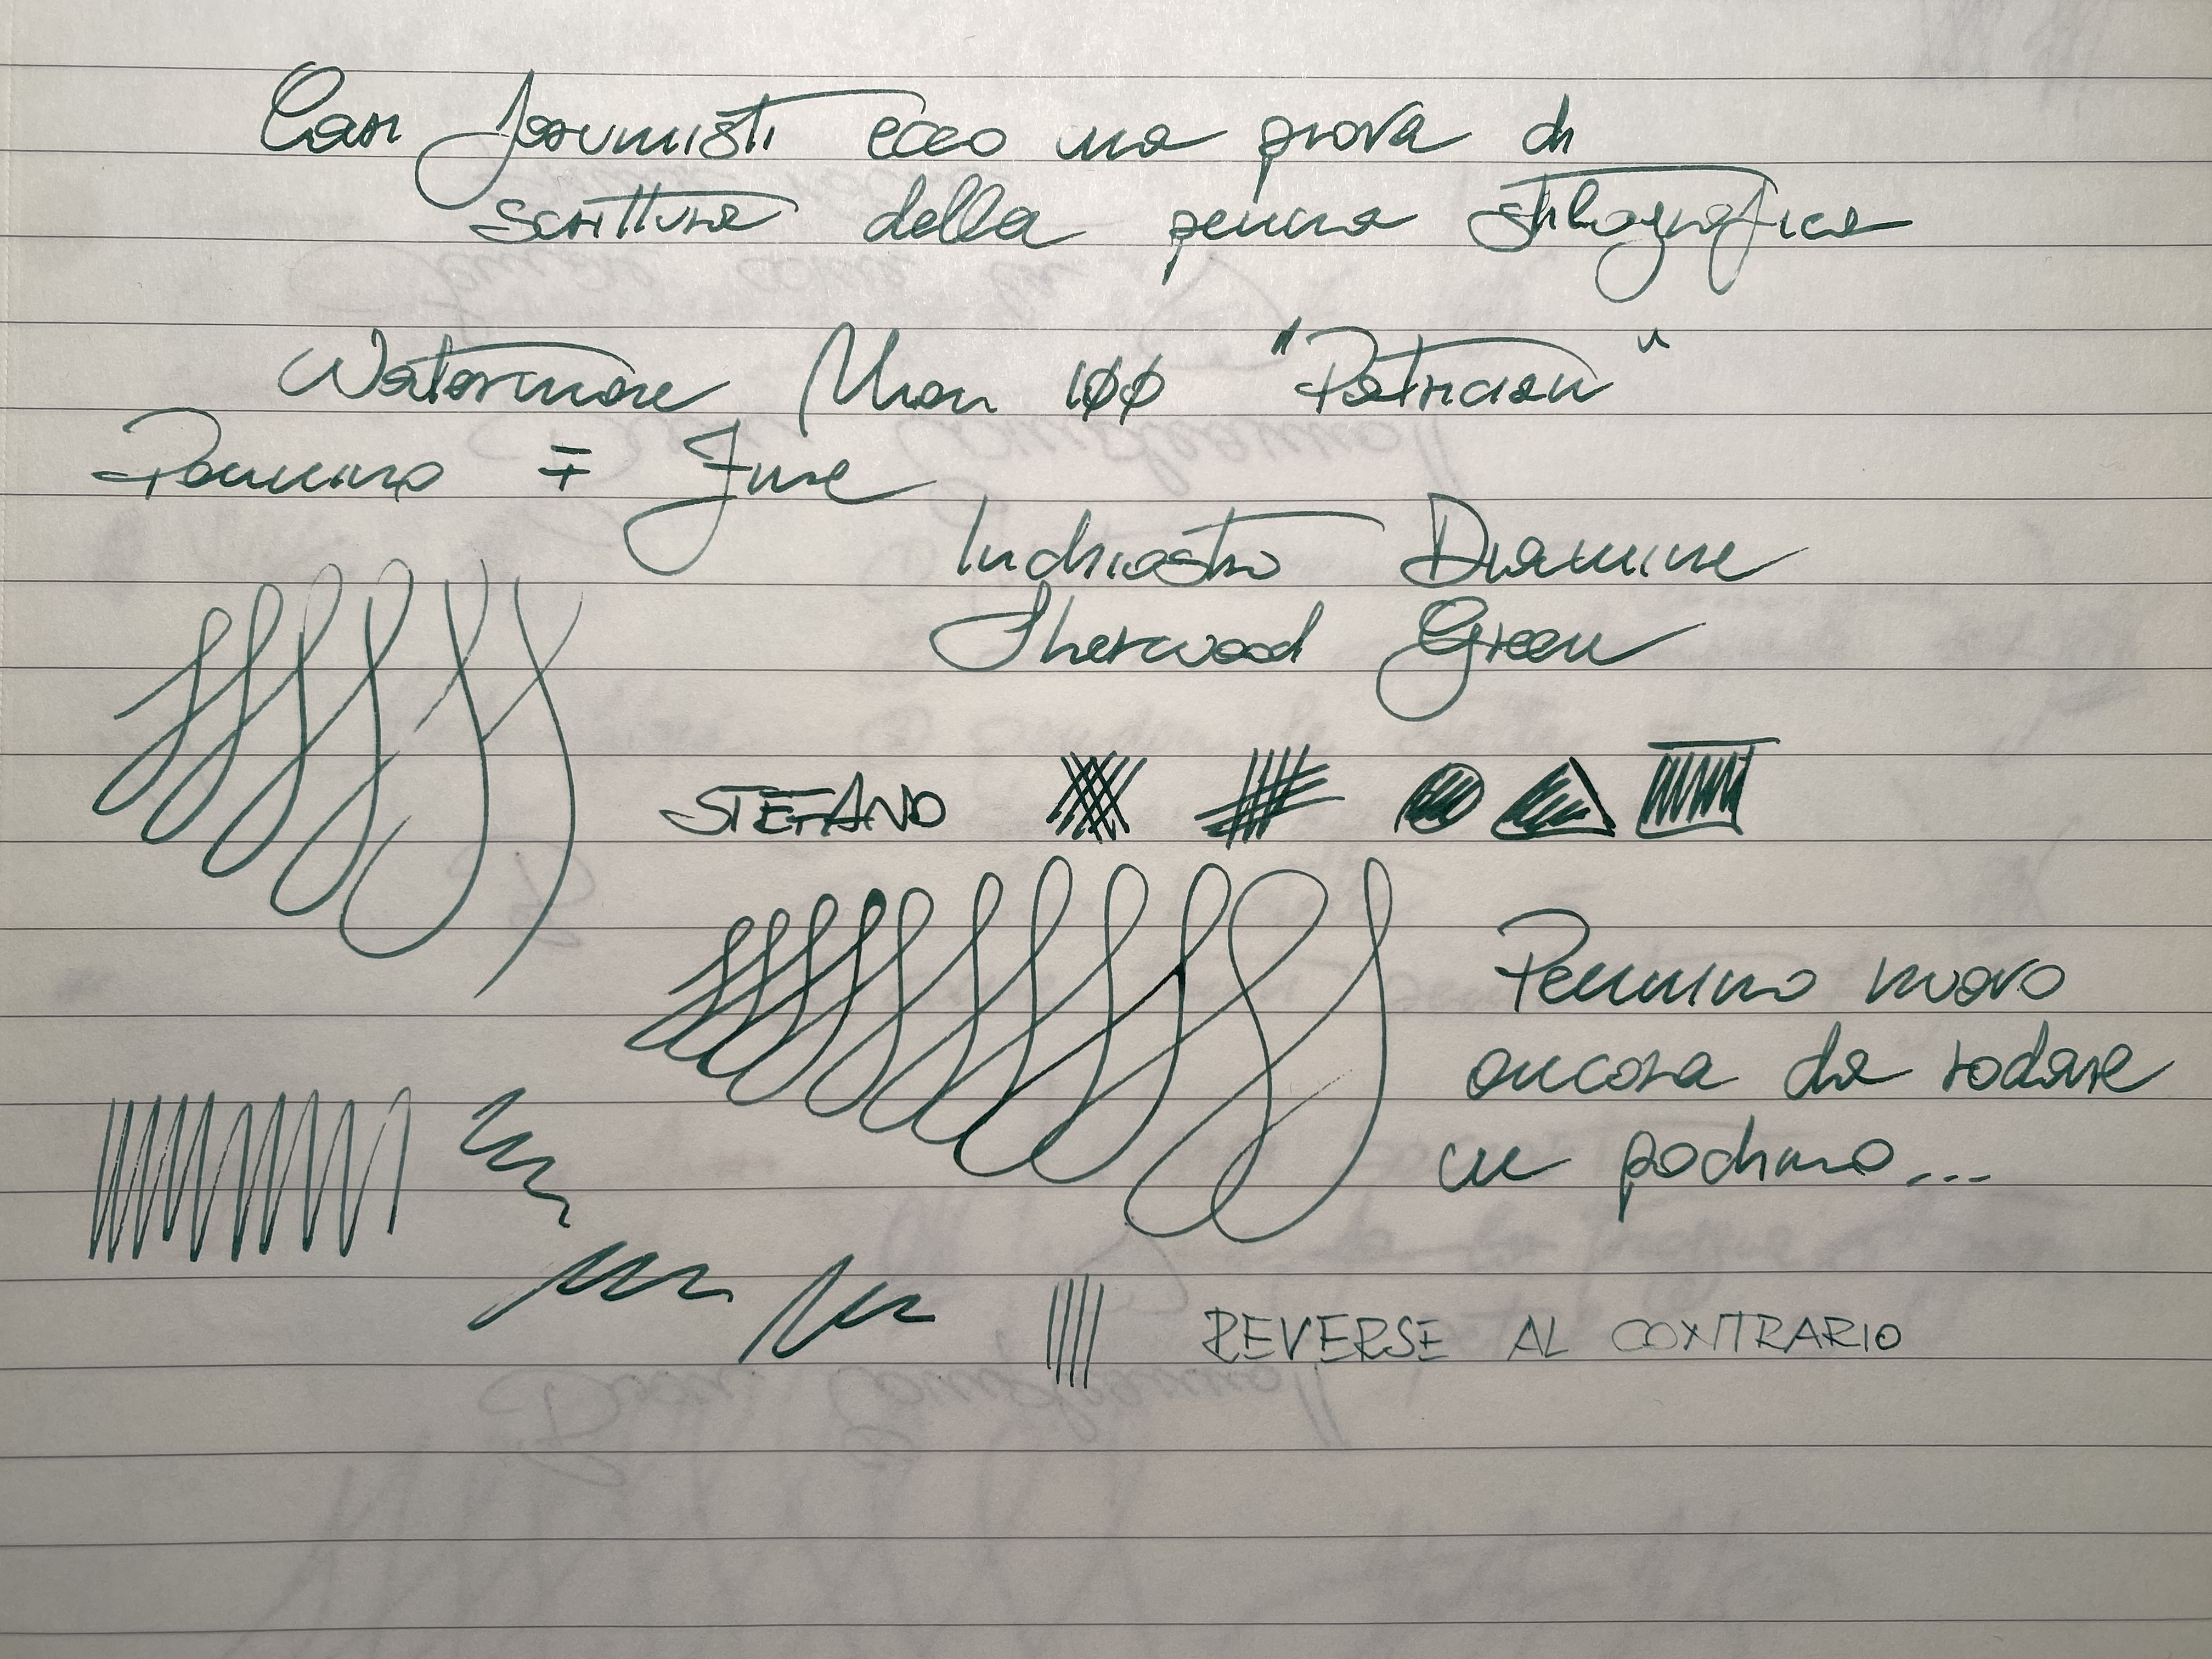 Cari forumisti ecco una prova di
scrittura della penna stilografica
Waterman Man 100 "Patrician"
Pennino F Fine
Inchiostro Diamine
Sherwood Green
STEFANO
Pennino nuovo
ancora da rodare
un pochino...
REVERSE AL CONTRARIO